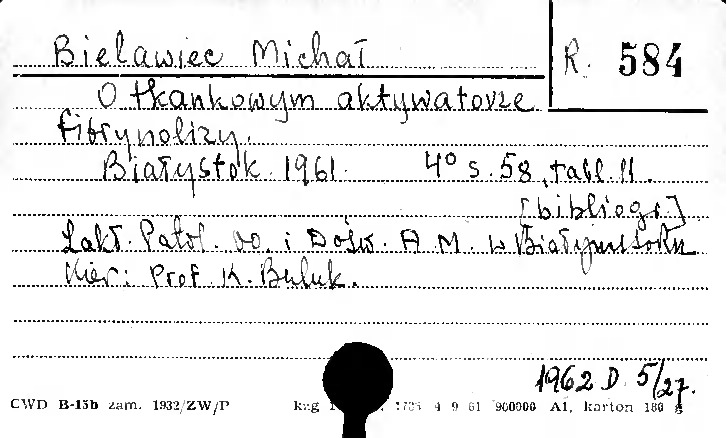 Bielawiec Michał
R. 584
O tkankowym aktywatorze
fibrynolizy.
Białystok 1961. 4° s. 58, tabl. 11.
[bibliogr.]
Zakł. Patol. Og. i Dośw. A M. w Białymstoku
Kier: Prof. K. Buluk.
1962 D. 5/27.
CWD B-15b zam. 1932/ZW/P 4 9 61 900000 A1, karton 180 g